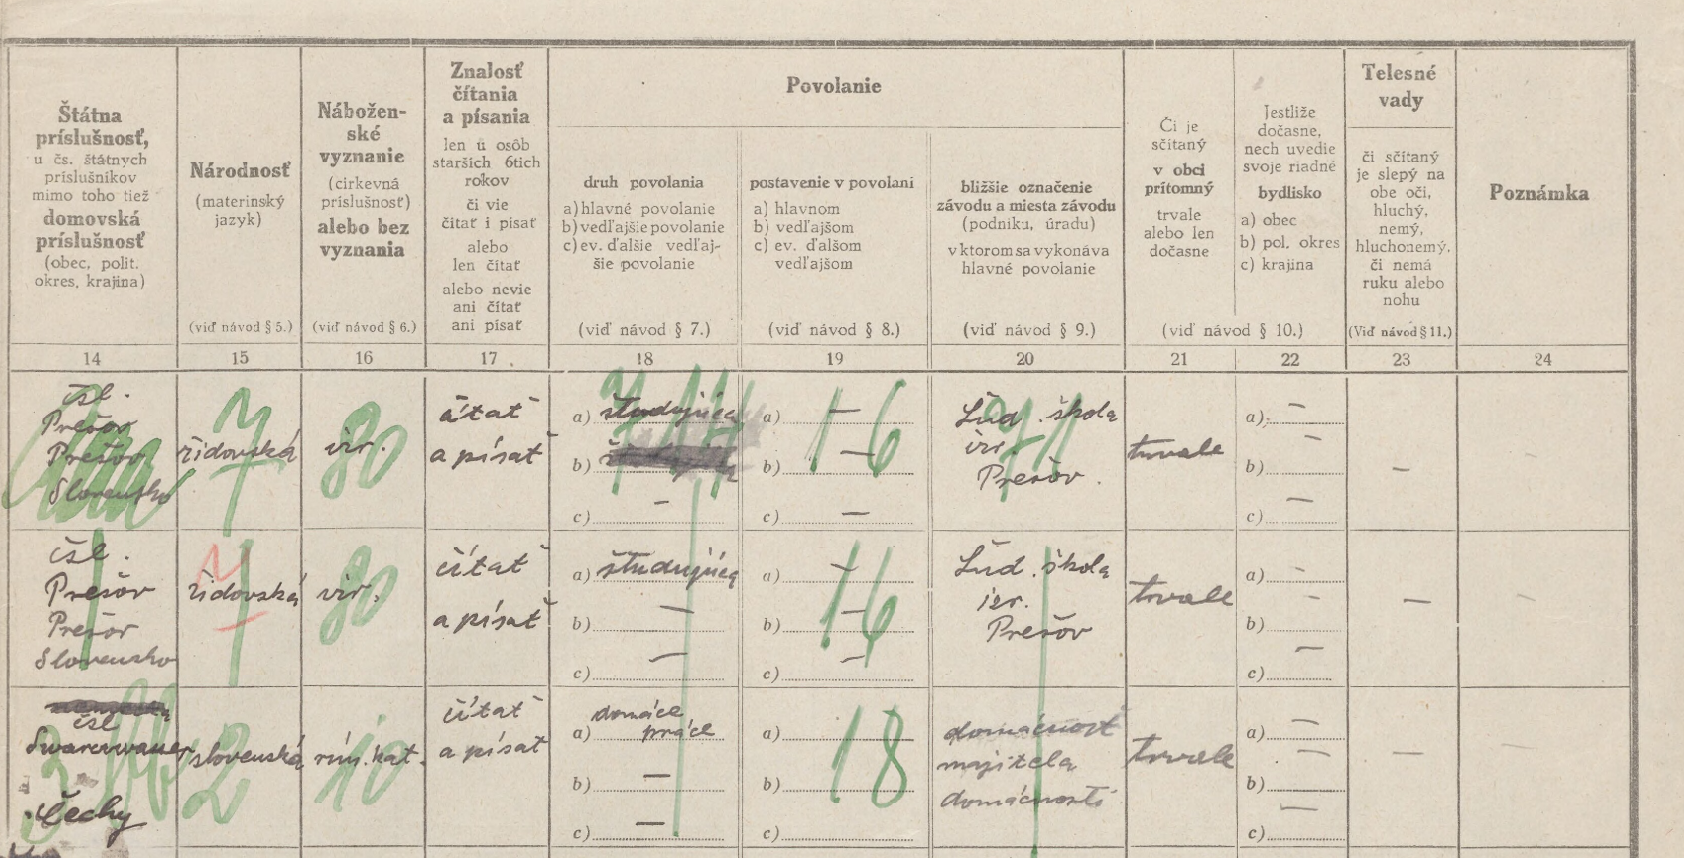 Štátna
príslušnosť,
u čs. štátnych
príslušníkov
mimo toho tiež
domovská
príslušnosť
(obec, polit.
okres, krajina)
Národnosť
(materinský
jazyk)
(viď návod § 5.)
Nábožen-
ské
vyznanie
(cirkevná
príslušnosť)
alebo bez
vyznania
(viď návod § 6.)
Znalosť
čítania
a písania
len u osôb
starších 6tich
rokov
či vie
čítať i písať
alebo
len čítať
alebo nevie
ani čítať
ani písať
Povolanie
druh povolania
a) hlavné povolanie
b) vedľajšie povolanie
c) ev. ďalšie vedľaj-
šie povolanie
(viď návod § 7.)
postavenie v povolaní
a) hlavnom
b) vedľajšom
c) ev. ďalšom
vedľajšom
(viď návod § 8.)
bližšie označenie
závodu a miesta závodu
(podniku, úradu)
v ktorom sa vykonáva
hlavné povolanie
(viď návod § 9.)
Či je
sčítaný
v obci
prítomný
trvale
alebo len
dočasne
Jestliže
dočasne,
nech uvedie
svoje riadné
bydlisko
a) obec
b) pol. okres
c) krajina
(viď návod § 10.)
Telesné
vady
či sčítaný
je slepý na
obe oči,
hluchý,
nemý,
hluchonemý,
či nemá
ruku alebo
nohu
(Viď návod § 11.)
Poznámka
14 15 16 17 18 19 20 21 22 23 24
čsl.
Prešov
Prešov
Slovensko
židovská
7
izr.
80
čítať
a písať
a) študujúca
b)
c) —
a) —
b) —
c) —
16
Ľud. škola
izr.
Prešov.
71
trvale
a) —
b) —
c) —
—
čsl.
Prešov
Prešov
Slovensko
1
židovská
izr.
80
čítať
a písať
a) študujúca
b) —
c) —
a) —
b) —
c) —
16
Ľud. škola
izr.
Prešov
trvale
a) —
b) —
c) —
—
čsl
Čechy
slovenská
2
rím. kat.
10
čítať
a písať
a) domáce
práce
b) —
c) —
a)
b)
c)
18
domácnosť
majitela
domácnosti
trvale
a) —
b) —
c) —
—